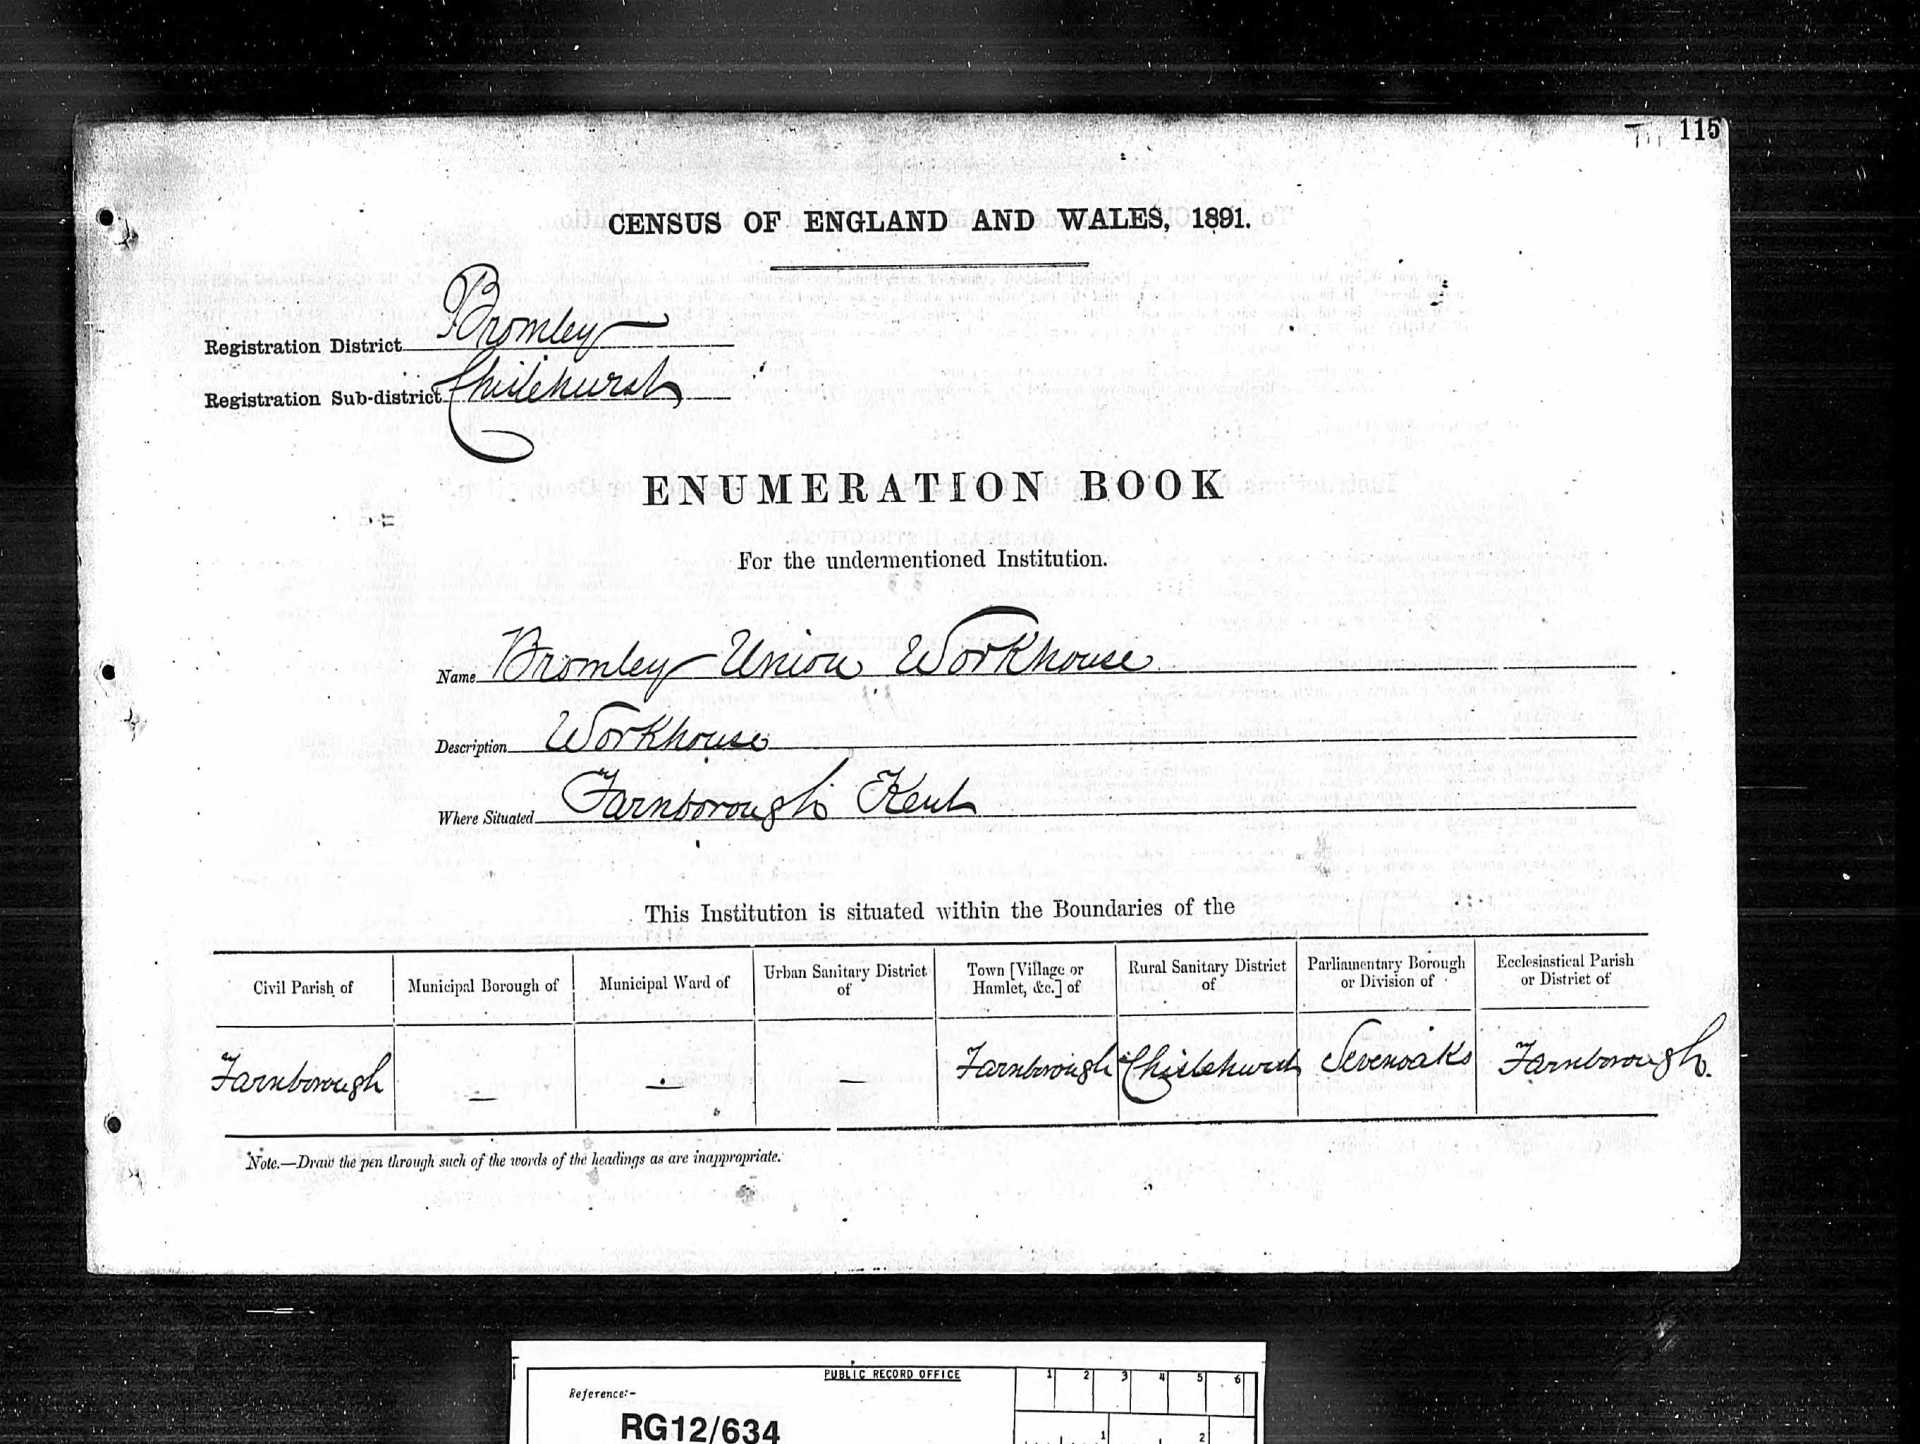 115
CENSUS OF ENGLAND AND WALES, 1891.
Registration District Bromley
Registration Sub-district Chislehurst
ENUMERATION BOOK
For the undermentioned Institution.
Name Bromley Union Workhouse
Description Workhouse
Where Situated Farnborough Kent
This Institution is situated within the Boundaries of the
Civil Parish of | Municipal Borough of | Municipal Ward of | Urban Sanitary District of | Town [Village or Hamlet, &c.] of | Rural Sanitary District of | Parliamentary Borough or Division of | Ecclesiastical Parish or District of
Farnborough | — | — | — | Farnborough | Chislehurst | Sevenoaks | Farnborough.
Note.—Draw the pen through such of the words of the headings as are inappropriate.
PUBLIC RECORD OFFICE
1 2 3 4 5 6
Reference:-
RG12/634
1 2